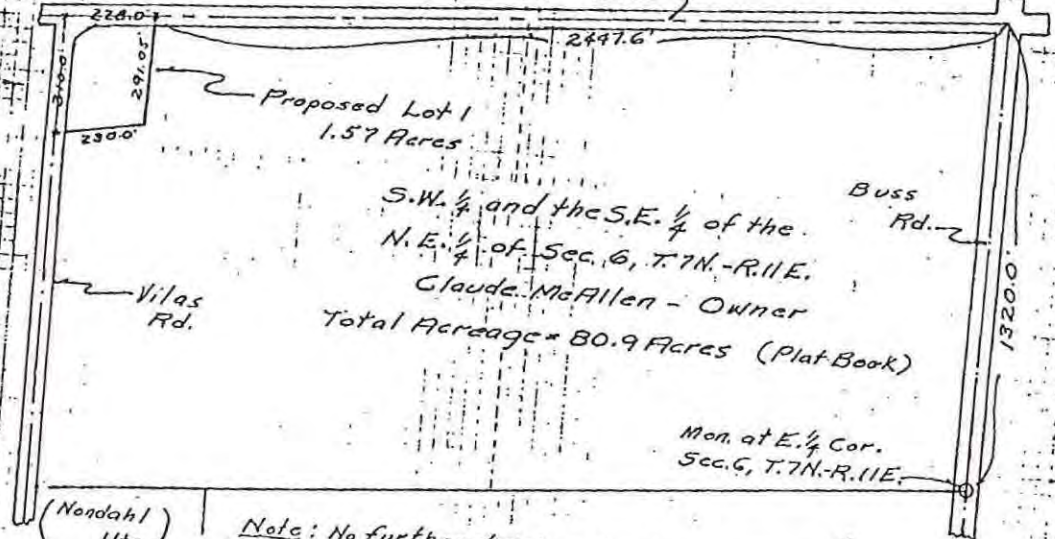 228.0'
2447.6'
310.0'
291.05'
230.0'
Proposed Lot 1
1.57 Acres
S.W. 1/4 and the S.E. 1/4 of the
N.E. 1/4 of Sec. 6, T.7N.-R.11E.
Claude McAllen - Owner
Total Acreage = 80.9 Acres (Plat Book)
Buss
Rd.
1320.0'
Vilas
Rd.
Mon. at E. 1/4 Cor.
Sec. 6, T.7N.-R.11E.
(Nondahl
Note: No further